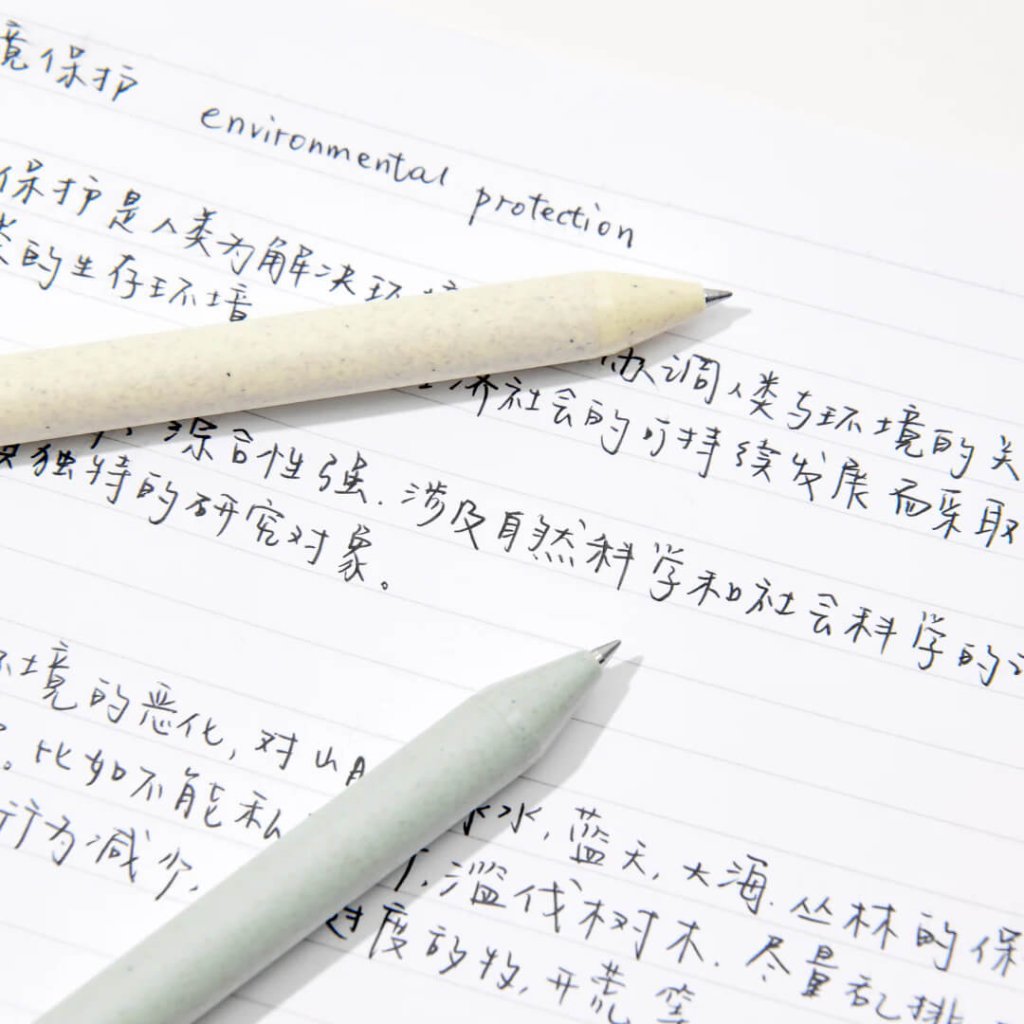 境保护 environmental protection
保护是人类为解决环境 协调人类与环境的关
类的生存环境 经济社会的可持续发展而采取
综合性强.涉及自然科学和社会科学的
独特的研究对象。
环境的恶化,对山
。比如不能私 水,蓝天,大海.丛林的保
行为减少, 滥伐树木.尽量乱排
过度的牧,开荒等